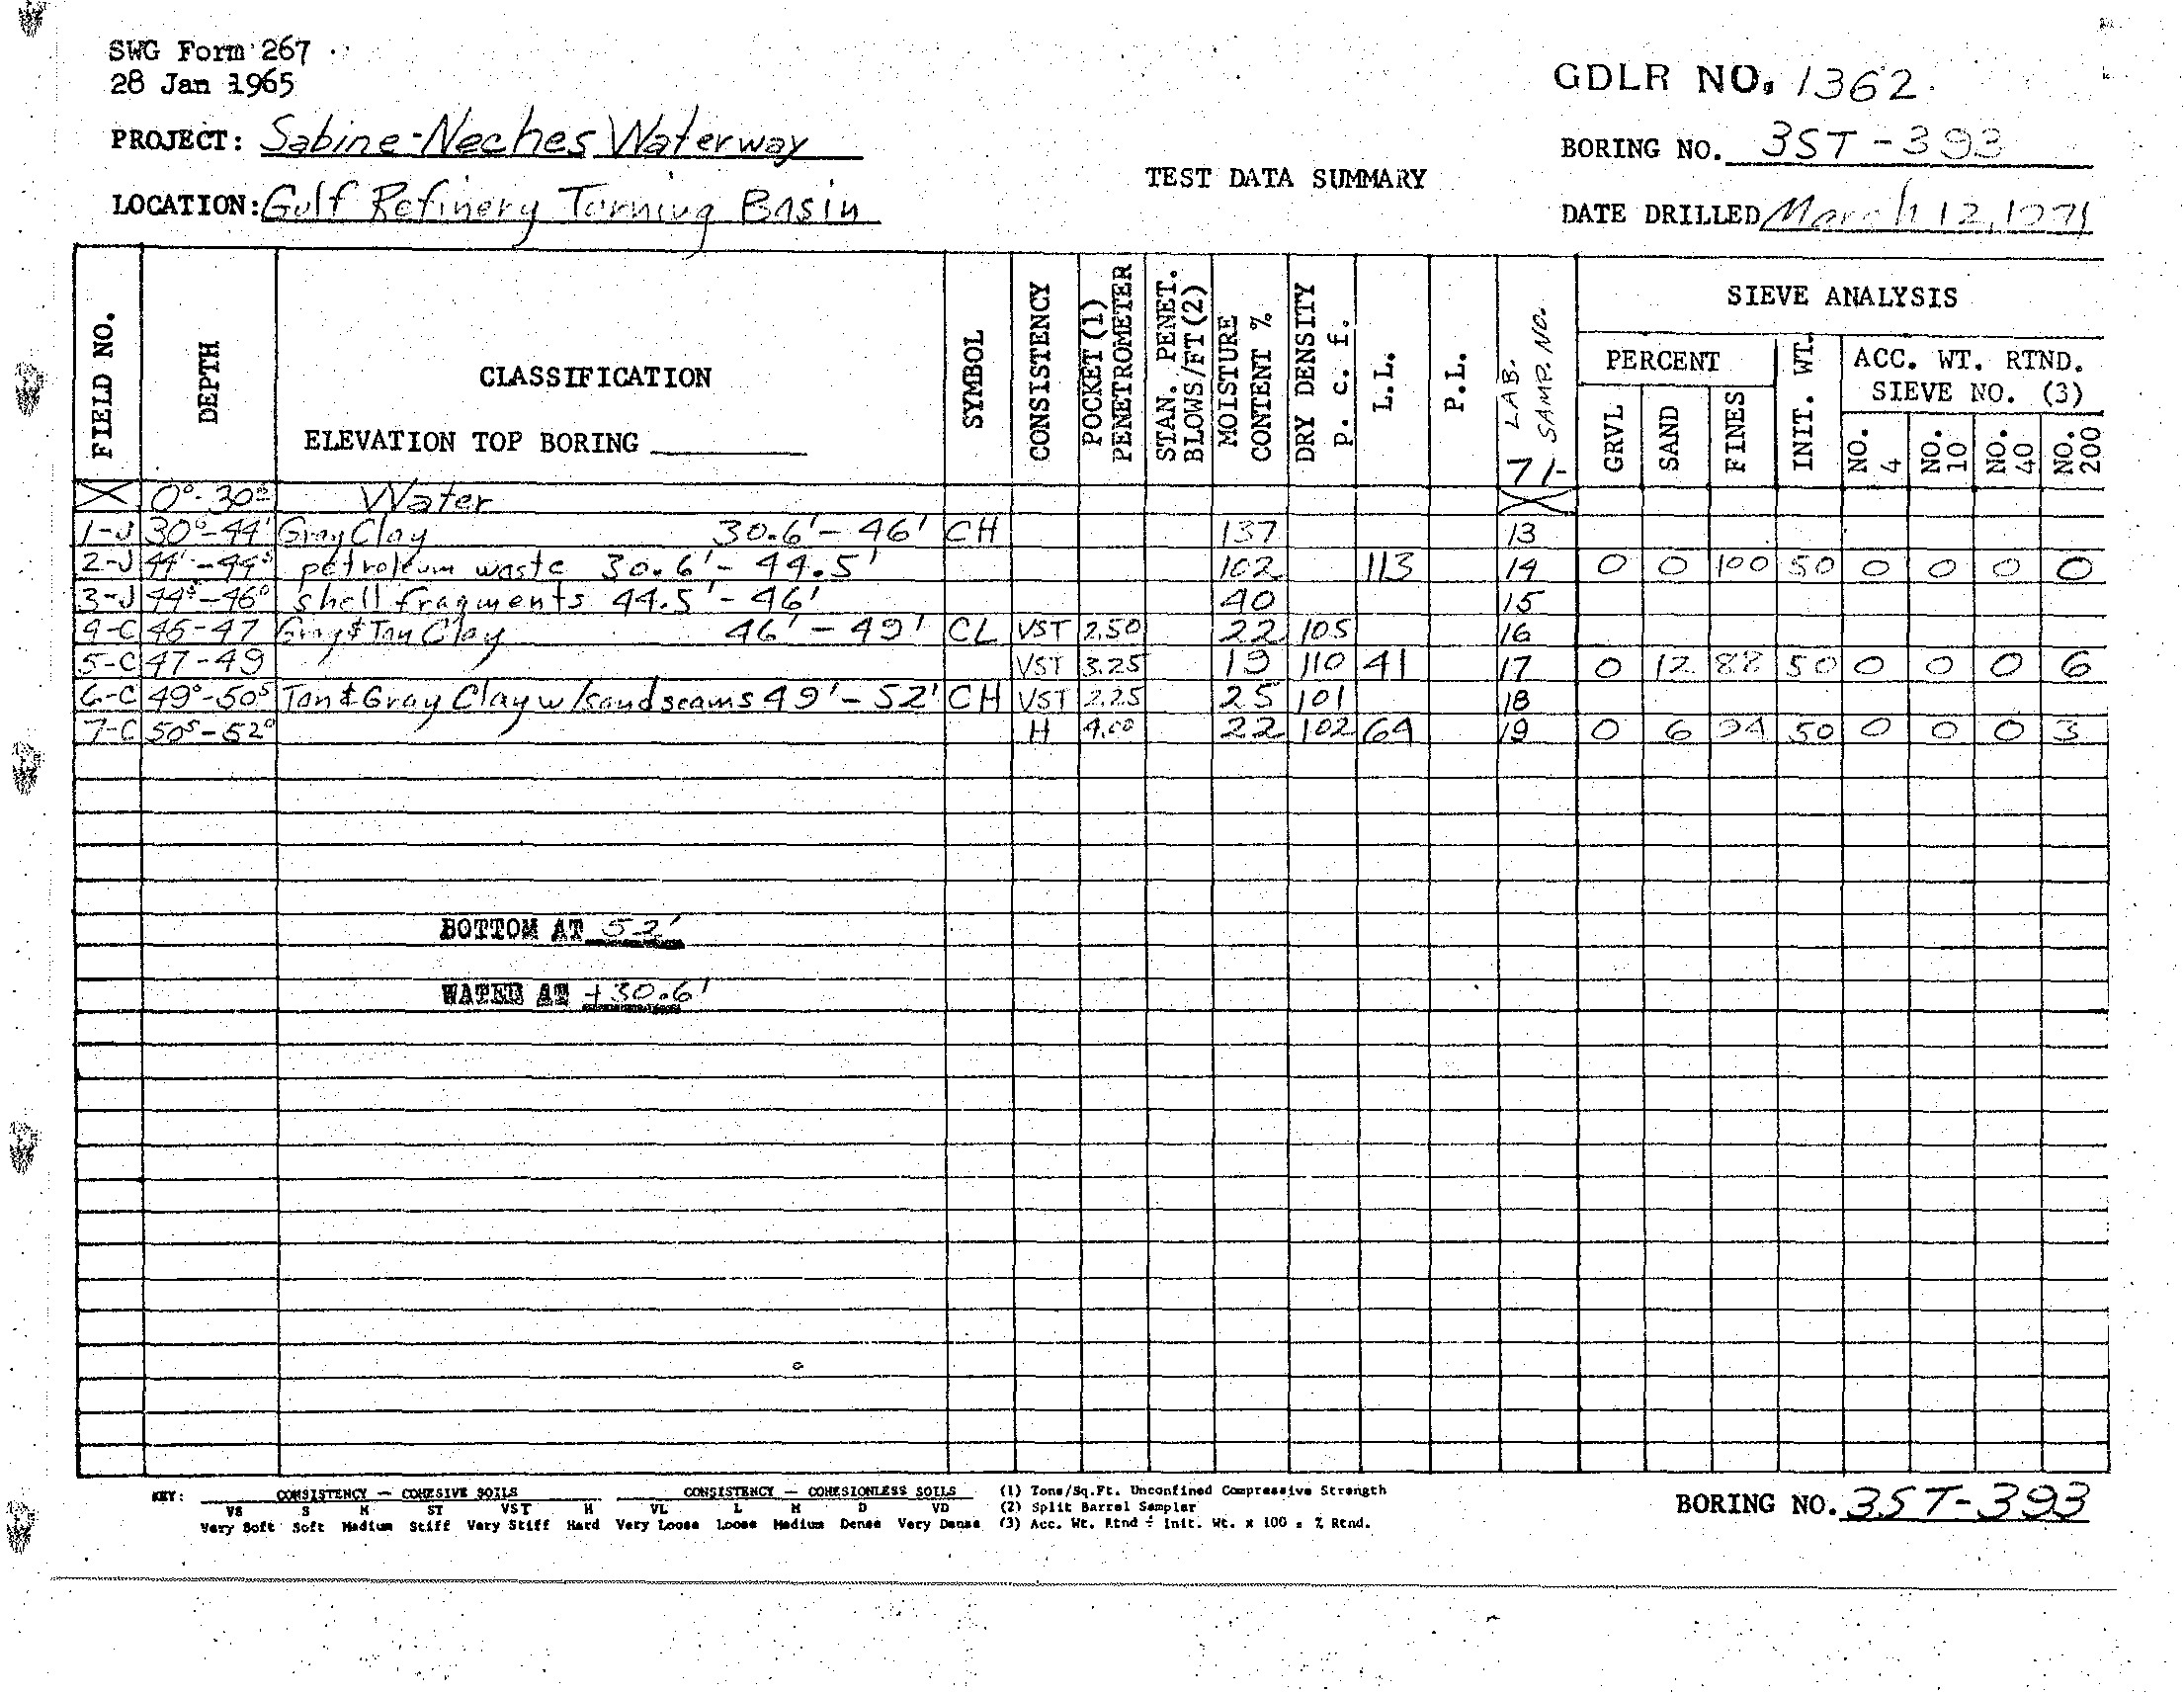 SWG Form 267
28 Jan 1965
GDLR NO. 1362
PROJECT: Sabine-Neches Waterway
BORING NO. 3ST-393
TEST DATA SUMMARY
LOCATION: Gulf Refinery Turning Basin
DATE DRILLED March 12, 1971
FIELD NO.
DEPTH
CLASSIFICATION
ELEVATION TOP BORING
SYMBOL
CONSISTENCY
POCKET (1) PENETROMETER
STAN. PENET. BLOWS/FT (2)
MOISTURE CONTENT %
DRY DENSITY p. c. f.
L.L.
P.L.
LAB. SAMP. NO.
71-
SIEVE ANALYSIS
PERCENT
GRVL
SAND
FINES
INIT. WT.
ACC. WT. RTND.
SIEVE NO. (3)
NO. 4
NO. 10
NO. 40
NO. 200
Water
1-J Gray Clay 30.6'- 46' CH 137 13
2-J petroleum waste 30.6'- 44.5' 102 113 14 0 0 100 50 0 0 0 0
3-J 44⁵-46⁰ shell fragments 44.5'- 46' 40 15
4-C 45-47 Gray & Tan Clay 46' - 49' CL VST 2.50 22 105 16
5-C 47-49 VST 3.25 19 110 41 17 0 12 88 50 0 0 0 6
6-C 49⁰-50⁵ Tan & Gray Clay w/sand seams 49'- 52' CH VST 2.25 25 101 18
7-C 50⁵-52⁰ H 4.00 22 102 64 19 0 6 94 50 0 0 0 3
BOTTOM AT 52'
WATER AT +30.6'
KEY: CONSISTENCY — COHESIVE SOILS CONSISTENCY — COHESIONLESS SOILS (1) Tons/Sq.Ft. Unconfined Compressive Strength
VS S M ST VST H VL L M D VD (2) Split Barrel Sampler
Very Soft Soft Medium Stiff Very Stiff Hard Very Loose Loose Medium Dense Very Dense (3) Acc. Wt. Rtnd ÷ Init. Wt. x 100 = % Rtnd.
BORING NO. 3ST-393